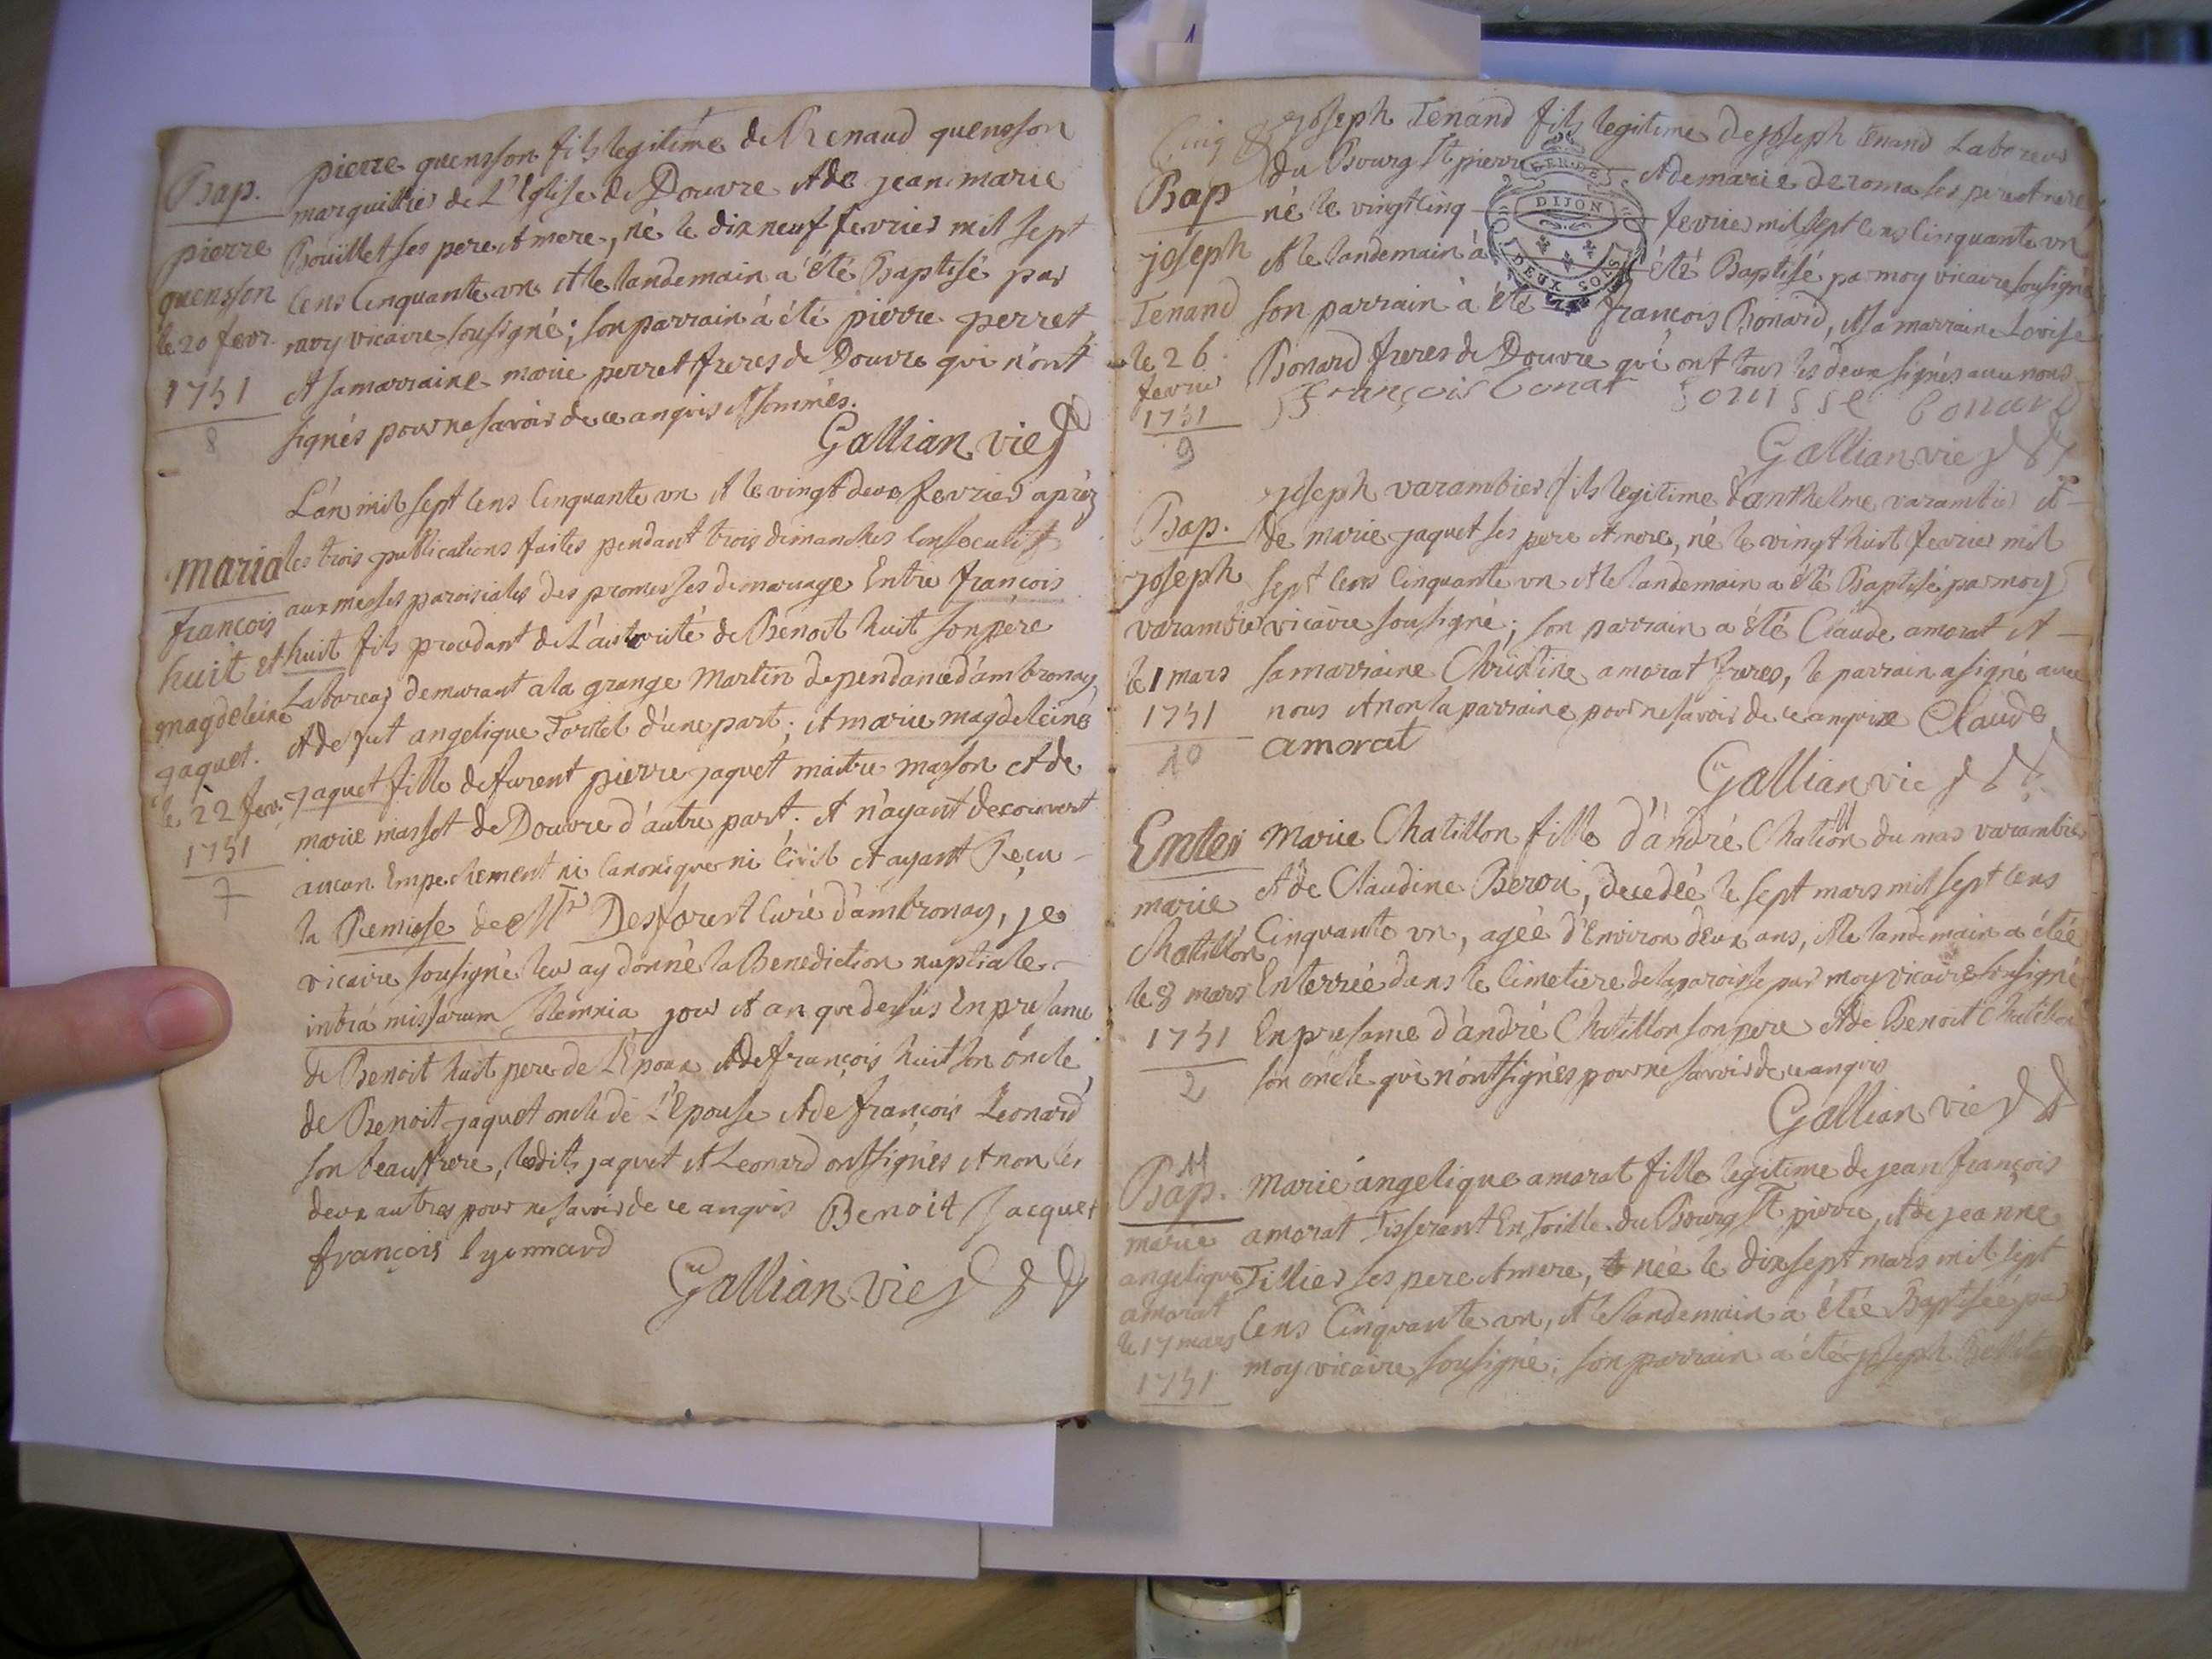 Bap.
pierre
quensson
le 20 fevr.
1751
8
pierre quensson fils legitime de Renaud quensson
marguillier de L'Eglise de Douvre et de jeanemarie
Boüillet ses pere et mere, né le dix neuf fevrier mil sept
cens cinquante un et le landemain a été Baptisé par
moy vicaire sousigné; son parrain à été pierre perret
et sa marraine marie perret freres de Douvre qui n'ont
signés pour ne savoir de ce anquis et sommés.
Gallian vic
maria
françois
huit et
magdeleine
jaquet.
le 22 fevr.
1751
7
L'an mil sept cens cinquante un et le vingt deux fevrier aprèz
les trois publications faites pendant trois dimanches consecutifs
aux messes paroisiales des promesses de mariage Entre françois
huit fils procedant de l'autorité de Benoit huit son pere
Laboreur demurant a la grange Martin dependance d'ambronay,
et de fut angelique Tortel d'une part; et marie magdeleine
jaquet fille defurent pierre jaquet maitre masson et de
marie massot de Douvre d'autre part. et n'ayant decouvert
aucun Empechement ni canonique ni civil et ayant Reçu
la Remisse de Mre Desforest curé d'ambronay, je
vicaire sousigné leur ay donné la Benediction nuptiale
intrà missarum solemnia jour et an que dessus En presance
de Benoit huit pere de L'Epoux et de françois huit son oncle,
de Benoit jaquet oncle de L'Epouse et de françois Leonard
son beaufrere, lesdits jaquet et Leonard ont signés et non les
deux autres pour ne savoir de ce anquis Benoit Jacquet
françois lyonnard
Gallian vic
Cinq
Bap
joseph
Tenand
le 26
fevrier
1751
9
joseph Tenand fils legitime de joseph tenand Laboreur
du Bourg St pierre et de marie deroma ses pere et mere
né le vingt cinq fevrier mil sept cens cinquante un
et le landemain à été Baptisé par moy vicaire sousigné
son parrain à été françois Bonard, et sa marraine Lovise
Bonard freres de Douvre qui ont tous les deux signés avec nous
GEN. DE
DIJON
DEUX SOLS
François bonat Louisse bonard
Gallian vic
Bap.
joseph
varambier
le 1 mars
1751
10
joseph varambier fils legitime d'anthelme varambier et
de marie jaquet ses pere et mere, né le vingt huit fevrier mil
sept cens cinquante un et le landemain a été Baptisé par moy
vicaire sousigné; son parrain a été Claude amorat et
sa marraine Christine amorat freres, le parrain a signé avec
nous et non la parraine pour ne savoir de ce anquise Claude
amorat
Gallian vic
Enter
marie
Chatillon
le 8 mars
1751
2
Marie Chatillon fille d'andré Chatillon du mas varambier
et de Claudine Beroü, decedée le sept mars mil sept cens
cinquante un, agée d'Environ deux ans, et le landemain a étée
Enterrée dans le cimetiere de la paroisse par moy vicaire sousigné
En presame d'andré Chatillon son pere et de Benoit Chatillon
son oncle qui n'ont signés pour ne savoir de ce anquis
Gallian vic
11
Bap.
marie
angelique
amorat
le 17 mars
1751
Marie angelique amorat fille legitime de jean françois
amorat Tisserant En Toille du Bourg St pierre, et de jeanne
Tillier ses pere et mere, née le dix sept mars mil sept
cens cinquante un, et le landemain a étée Baptisée par
moy vicaire sousigné; son parrain a été joseph